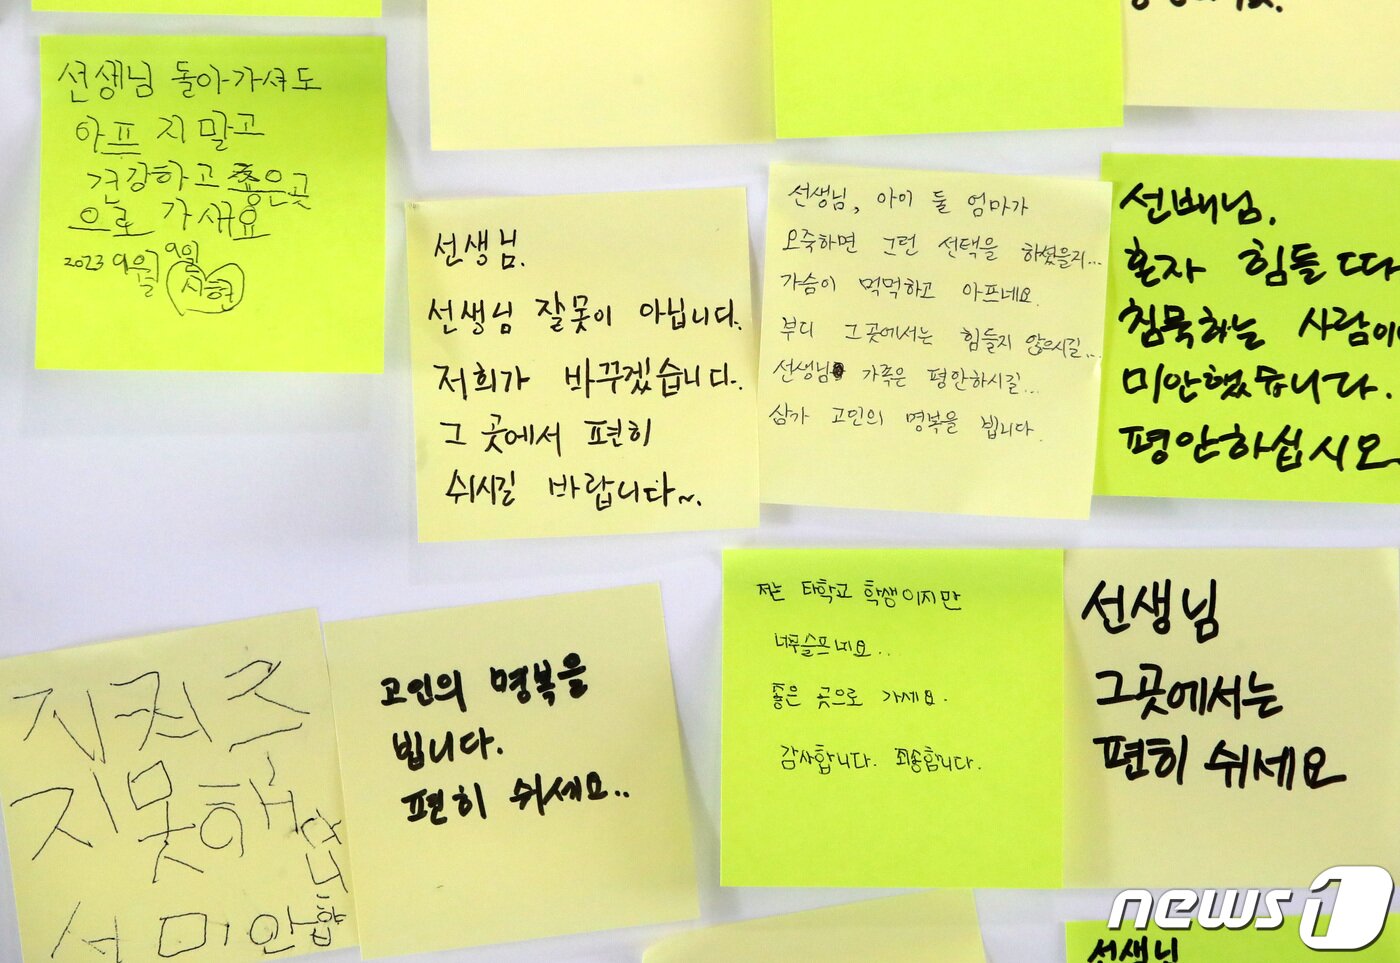 선생님 돌아가셔도
아프지말고
건강하고 좋은곳
으로 가새요
2023 9월 9일
시현
선생님.
선생님 잘못이 아닙니다.
저희가 바꾸겠습니다.
그 곳에서 편히
쉬시길 바랍니다~.
선생님, 아이 둘 엄마가
오죽하면 그런 선택을 하셨을지...
가슴이 먹먹하고 아프네요.
부디 그곳에서는 힘들지 않으시길...
선생님 가족은 평안하시길...
삼가 고인의 명복을 빕니다.
선배님.
혼자 힘들 때
침묵하는 사람이
미안했습니다.
평안하십시오
지켜주
지못해
서 미안합
니다
고인의 명복을
빕니다.
편히 쉬세요..
저는 타학교 학생이지만
너무슬프네요..
좋은 곳으로 가세요.
감사합니다. 죄송합니다.
선생님
그곳에서는
편히 쉬세요
선생님
news1